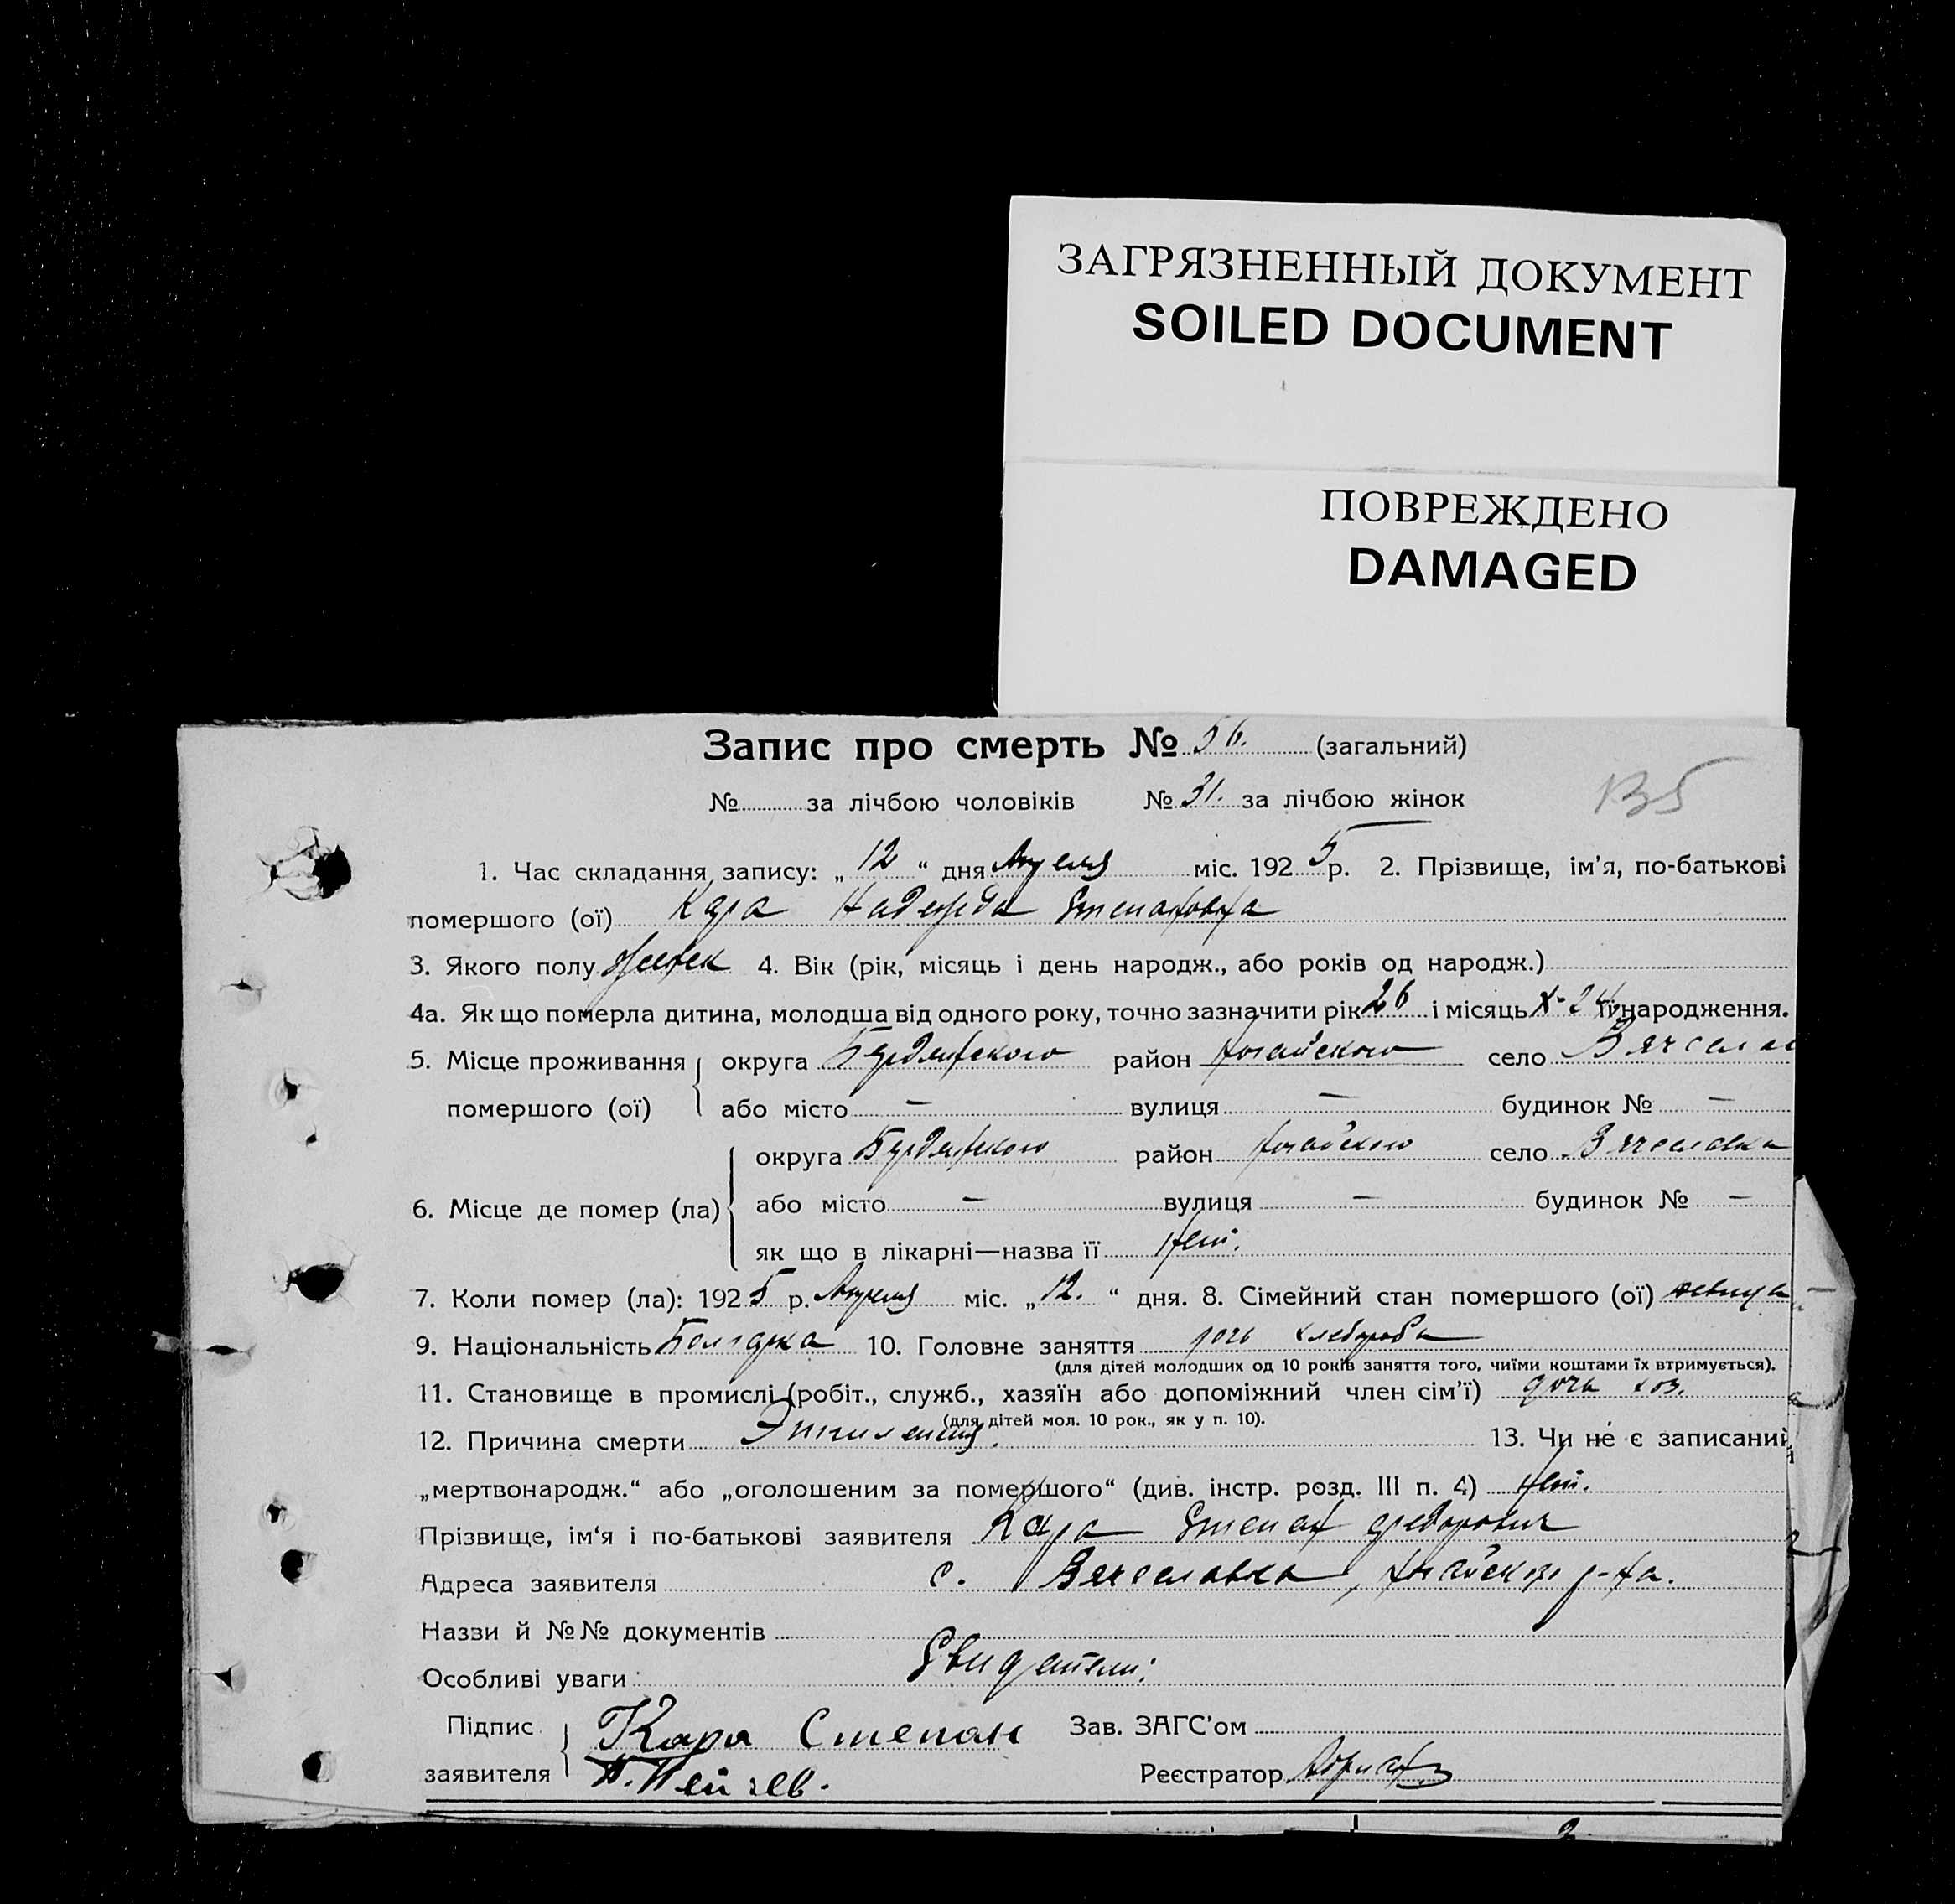 ЗАГРЯЗНЕННЫЙ ДОКУМЕНТ
SOILED DOCUMENT
ПОВРЕЖДЕНО
DAMAGED
Запис про смерть № 56. (загальний)
№ за лічбою чоловіків № 31. за лічбою жінок
1. Час складання запису: „ 12 “ дня Апреля міс. 192 5 р. 2. Прізвище, ім’я, по-батькові
помершого (ої) Кара Надежда Степановна
3. Якого полу женск 4. Вік (рік, місяць і день народж., або років од народж.)
4а. Як що померла дитина, молодша від одного року, точно зазначити рік 26 і місяць X-24 її народження.
5. Місце проживання округа Бердянского район Ногайского село Вячеслав
помершого (ої) або місто — вулиця — будинок № —
округа Бердянского район Ногайского село Вячеславка
6. Місце де помер (ла) або місто — вулиця — будинок № —
як що в лікарні—назва її Нет.
7. Коли помер (ла): 192 5 р. Апреля міс. „ 12. “ дня. 8. Сімейний стан помершого (ої) девица
9. Національність Болгарка 10. Головне заняття дочь хлебороба
(для дітей молодших од 10 років заняття того, чиїми коштами їх втримується).
11. Становище в промислі (робіт., служб., хазяїн або допоміжний член сім’ї) дочь хоз.
(для дітей мол. 10 рок., як у п. 10).
12. Причина смерти Эпилепсия. 13. Чи не є записаний
„мертвонародж.“ або „оголошеним за помершого“ (див. інстр. розд. III п. 4) Нет.
Прізвище, ім‘я і по-батькові заявителя Кара Степан Федорович
Адреса заявителя с. Вячеславка, Ногайского р-на.
Назви й №№ документів
Особливі уваги: Свидетели:
Підпис Кара Степан Зав. ЗАГС’ом
заявителя Реєстратор